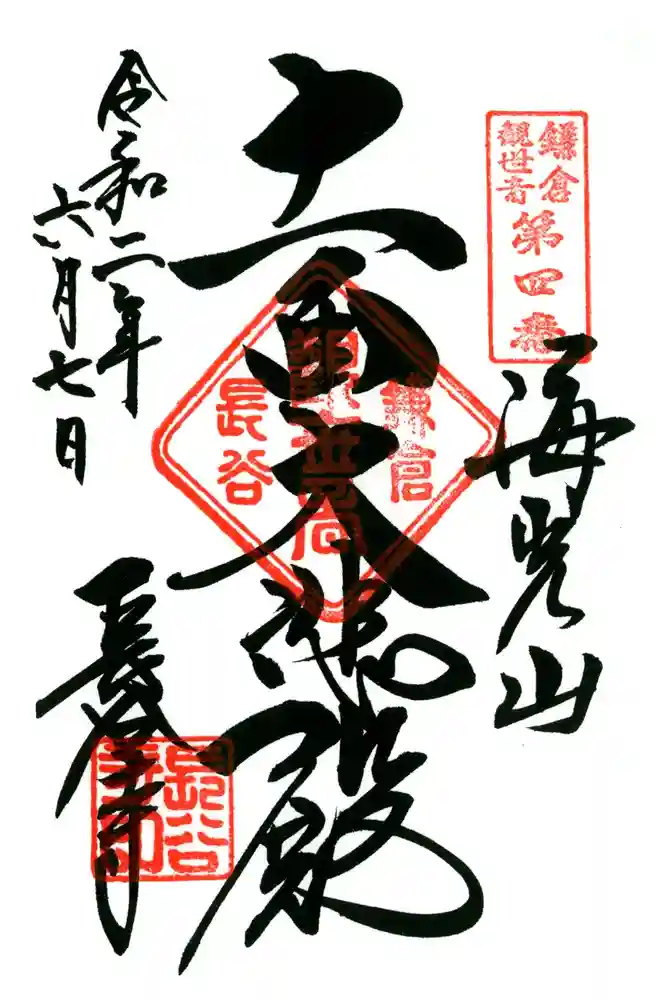 鎌倉
観世音
第四番
海光山
十一面大悲殿
鎌倉
観世音
長谷
令和二年
六月七日
長谷寺
長谷
寺印